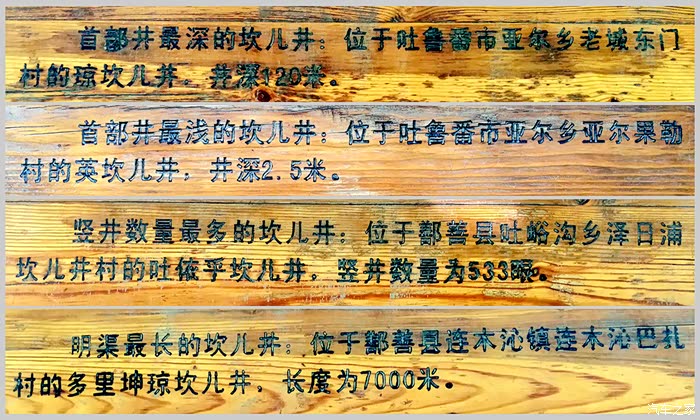 首部井最深的坎儿井：位于吐鲁番市亚尔乡老城东门
村的琼坎儿井，井深120米。
首部井最浅的坎儿井：位于吐鲁番市亚尔乡亚尔果勒
村的英坎儿井，井深2.5米。
竖井数量最多的坎儿井：位于鄯善县吐峪沟乡泽日浦
坎儿井村的吐依乎坎儿井，竖井数量为533眼。
明渠最长的坎儿井：位于鄯善县连木沁镇连木沁巴扎
村的多里坤琼坎儿井，长度为7000米。
汽车之家